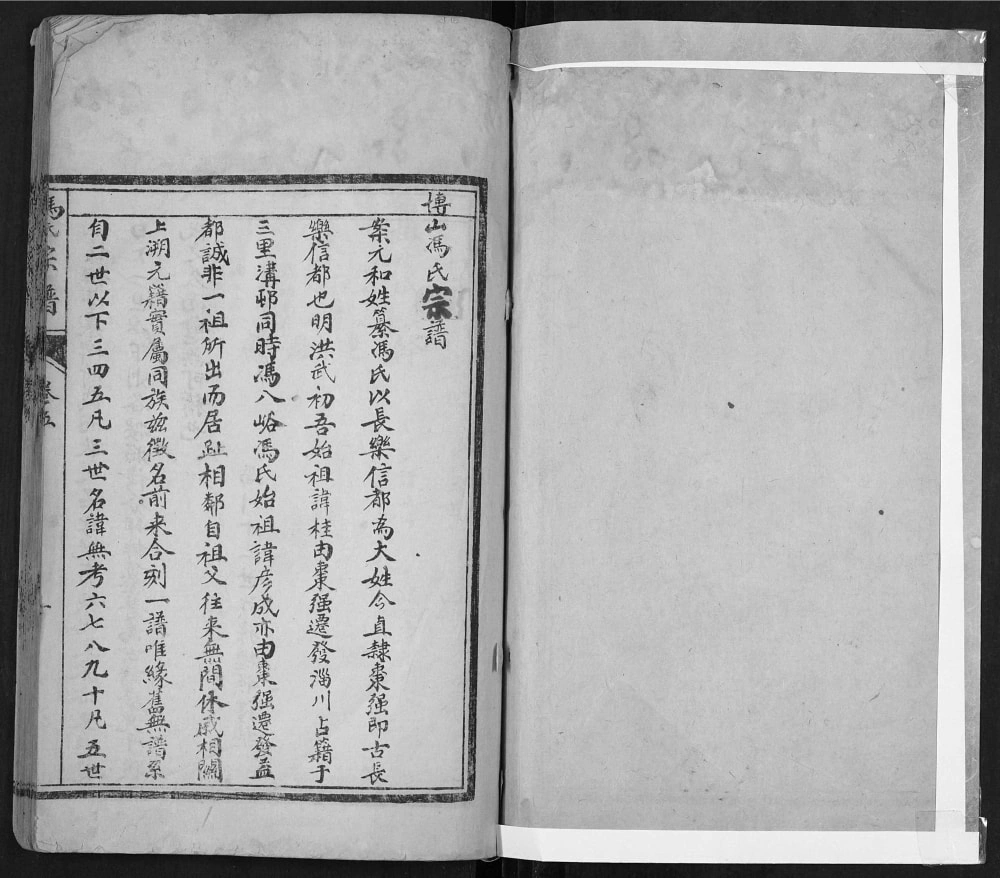 博山馮氏宗譜
案元和姓纂馮氏以長樂信都為大姓今直隸棗强即古長
樂信都也明洪武初吾始祖諱桂由棗强遷發淄川占籍于
三里溝邨同時馮八峪馮氏始祖諱彦成亦由棗强遷發益
都誠非一祖所出而居趾相鄰自祖父往来無間休戚相關
上溯元籍實屬同族玆徵名前来合刻一譜唯緣舊無譜系
自二世以下三四五凡三世名諱無考六七八九十凡五世
馮氏宗譜
卷五
一